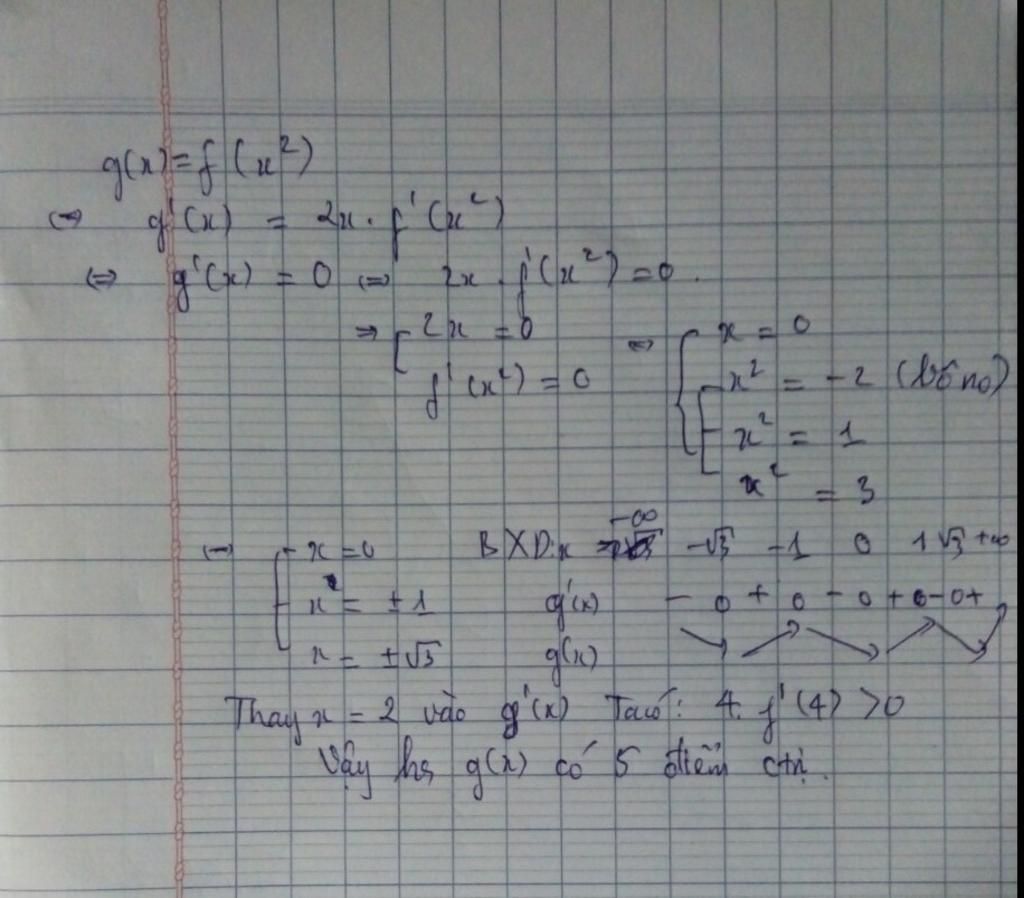 g(x) = f(x²)
⇔ g'(x) = 2x. f'(x²)
⇔ g'(x) = 0 ⇔ 2x. f'(x²) = 0.
⇒ [ 2x = 0 ⇔ { x = 0
f'(x²) = 0 [ x² = -2 (
x² = 1
x² = 3
⇔ [ x = 0 BXD: x -∞ -√3 -1 0 1 √3 +∞
x = ±1 g'(x) - 0 + 0 - 0 + 0 - 0 +
x = ±√3 g(x) ↘ ↗ ↘ ↗ ↘ ↗
Thay x = 2 vào g'(x) Ta có: 4. f'(4) > 0
Vậy hs g(x) có 5 điểm ctrị.